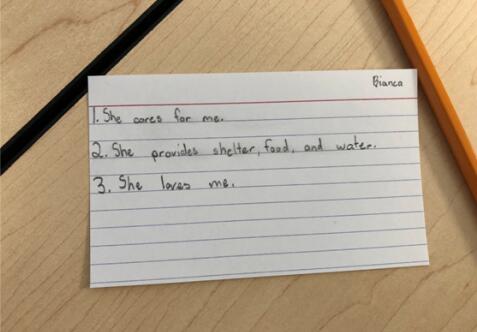 Bianca
1. She cares for me.
2. She provides shelter, food, and water.
3. She loves me.